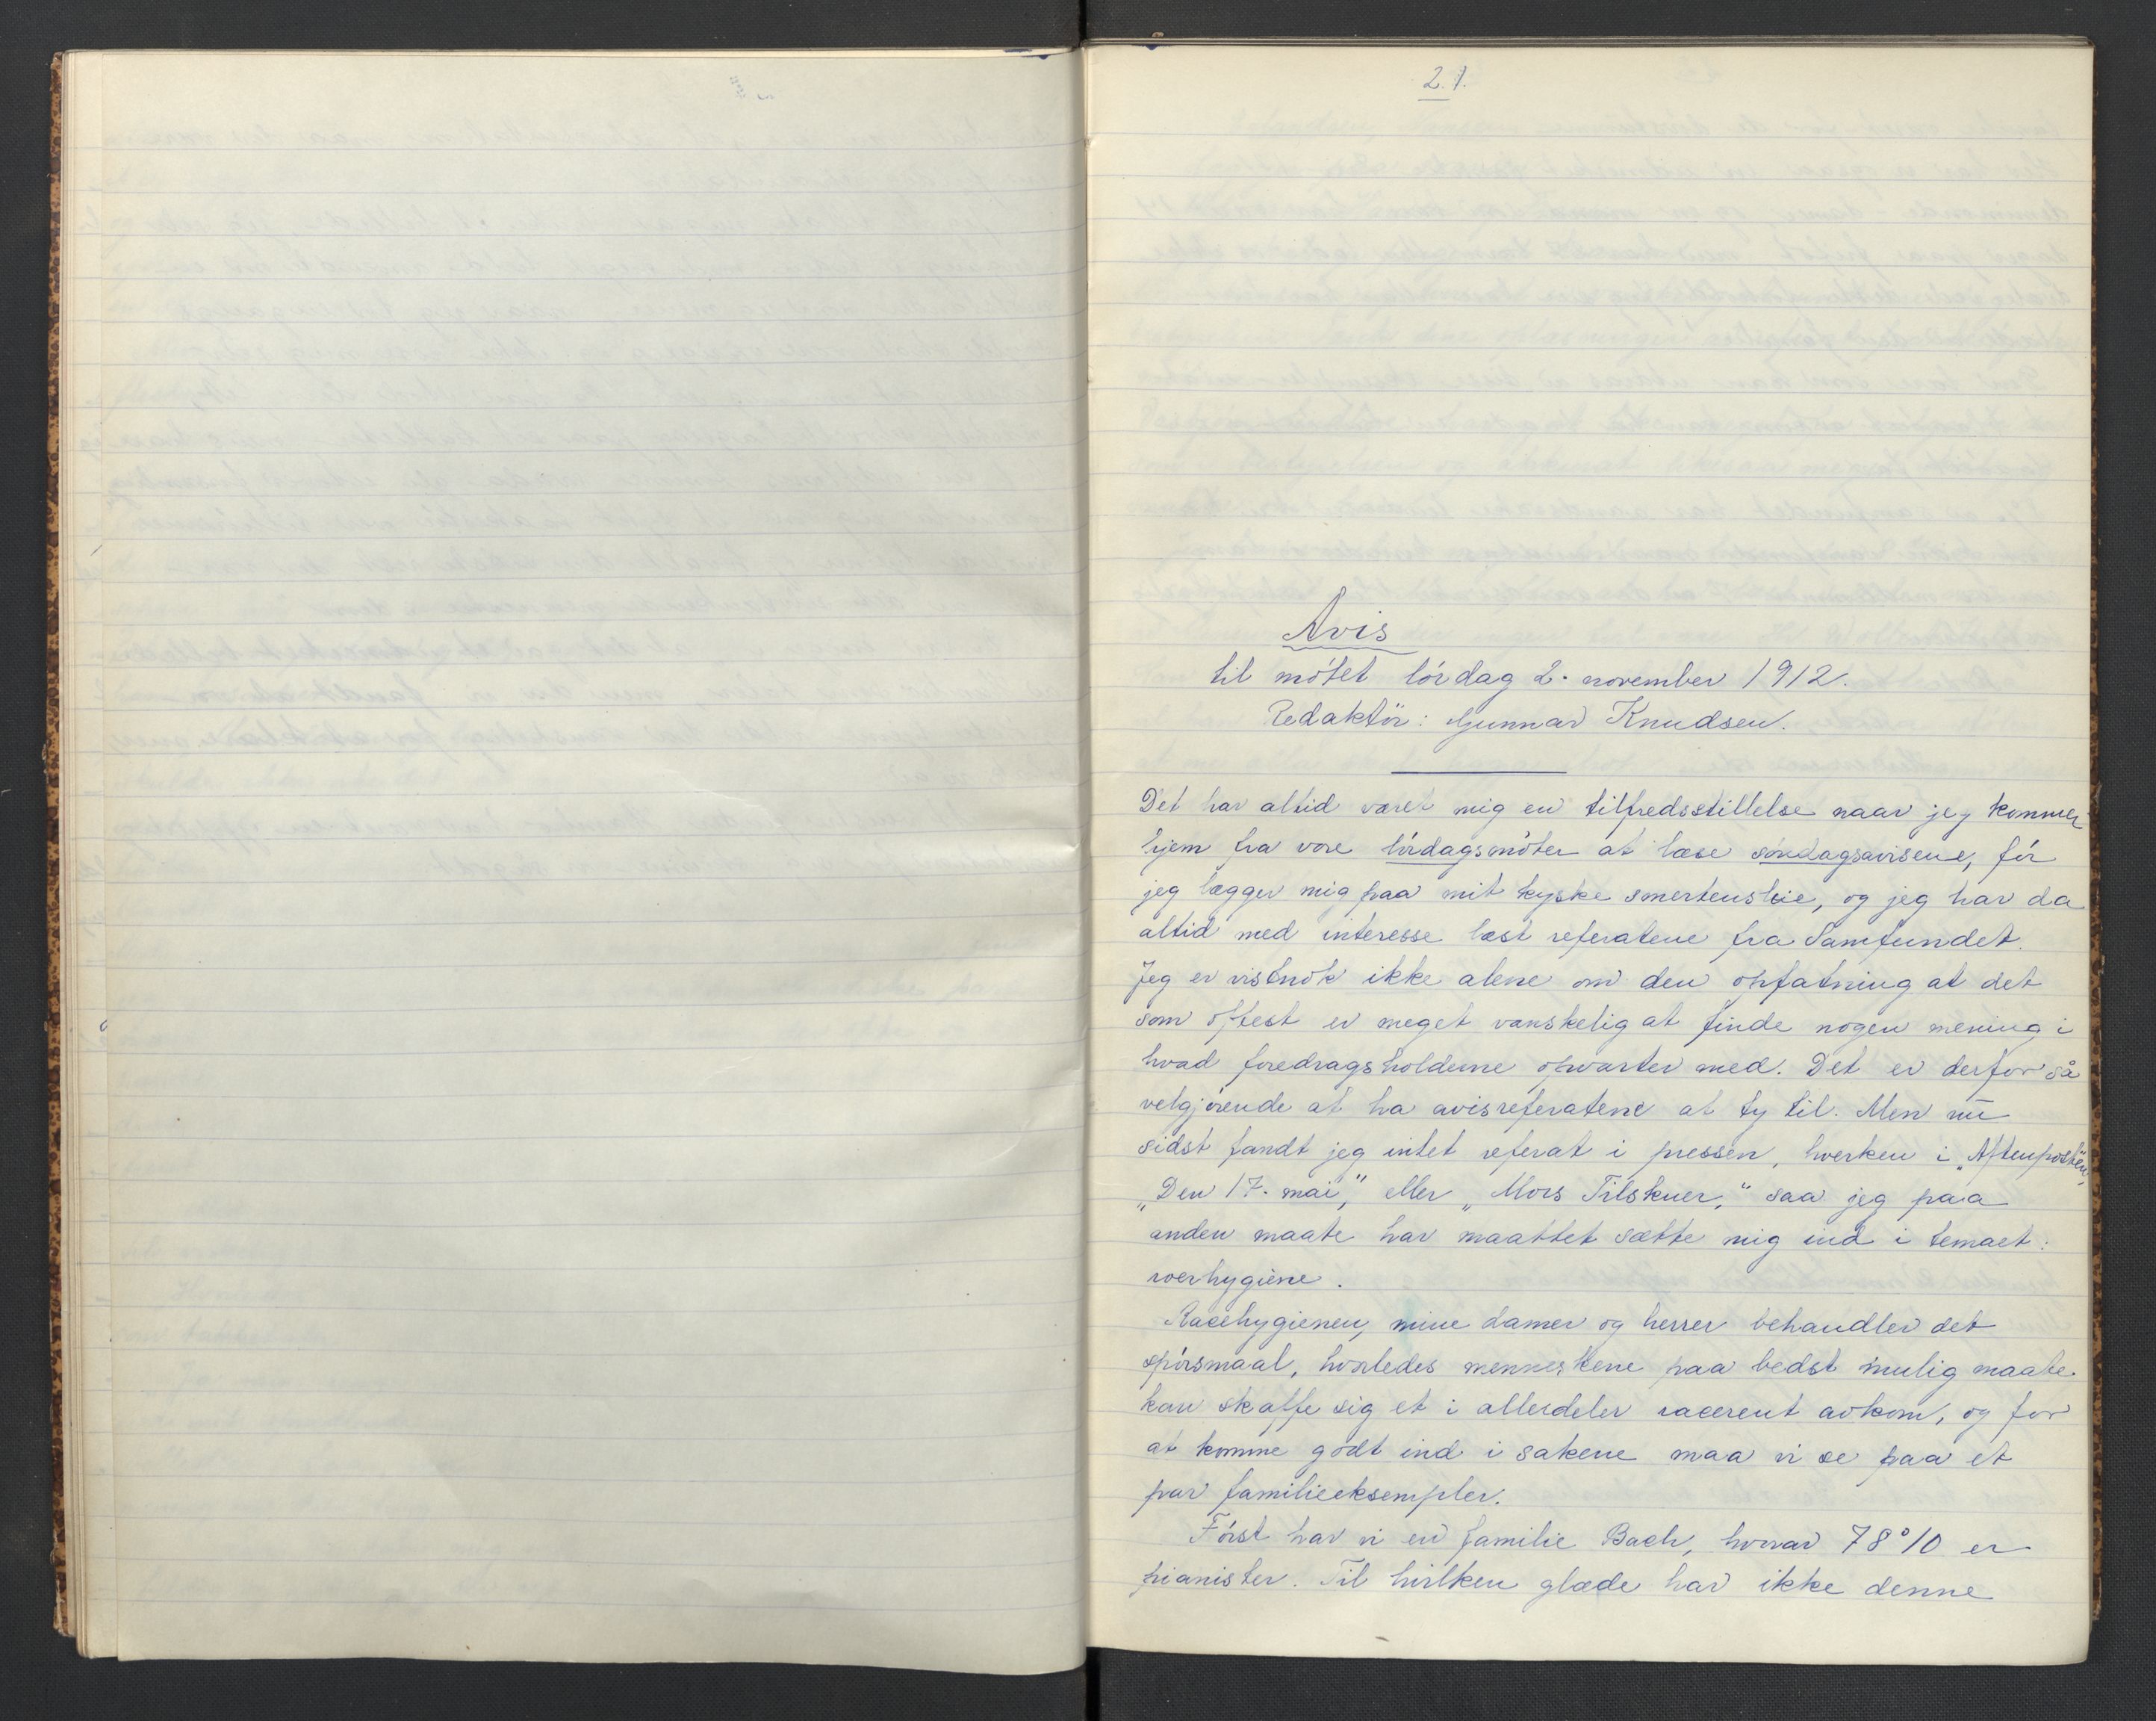 2.1.
Avis
til mötet lördag 2. november 1912.
Redaktör: Gunnar Knudsen.
Det har altid været mig en tilfredsstillelse naar jeg kommer
hjem fra vore lördagsmöter at læse söndagsavisene, för
jeg lægger mig paa mit kyske smertensleie, og jeg har da
altid med interesse læst referatene fra Samfundet.
Jeg er vistnok ikke alene om den opfatning at det
som oftest er meget vanskelig at finde nogen mening i
hvad foredragsholderne opvarter med. Det er derfor så
velgjörende at ha avisreferatene at ty til. Men nu
sidst fandt jeg intet referat i pressen, hverken i „Aftenposten“,
„Den 17. mai“, eller „Mors Tilskuer,“ saa jeg paa
anden maate har maattet sætte mig ind i temaet:
racehygiene.
Racehygienen, mine damer og herrer behandler det
spörsmaal, hvorledes menneskene paa bedst mulig maate
kan skaffe sig et i alle deler racerent avkom, og for
at komme godt ind i sakene maa vi se paa et
par familieeksempler.
Först har vi en familie Bach, hvorav 78 % er
pianister. Til hvilken glæde har ikke denne